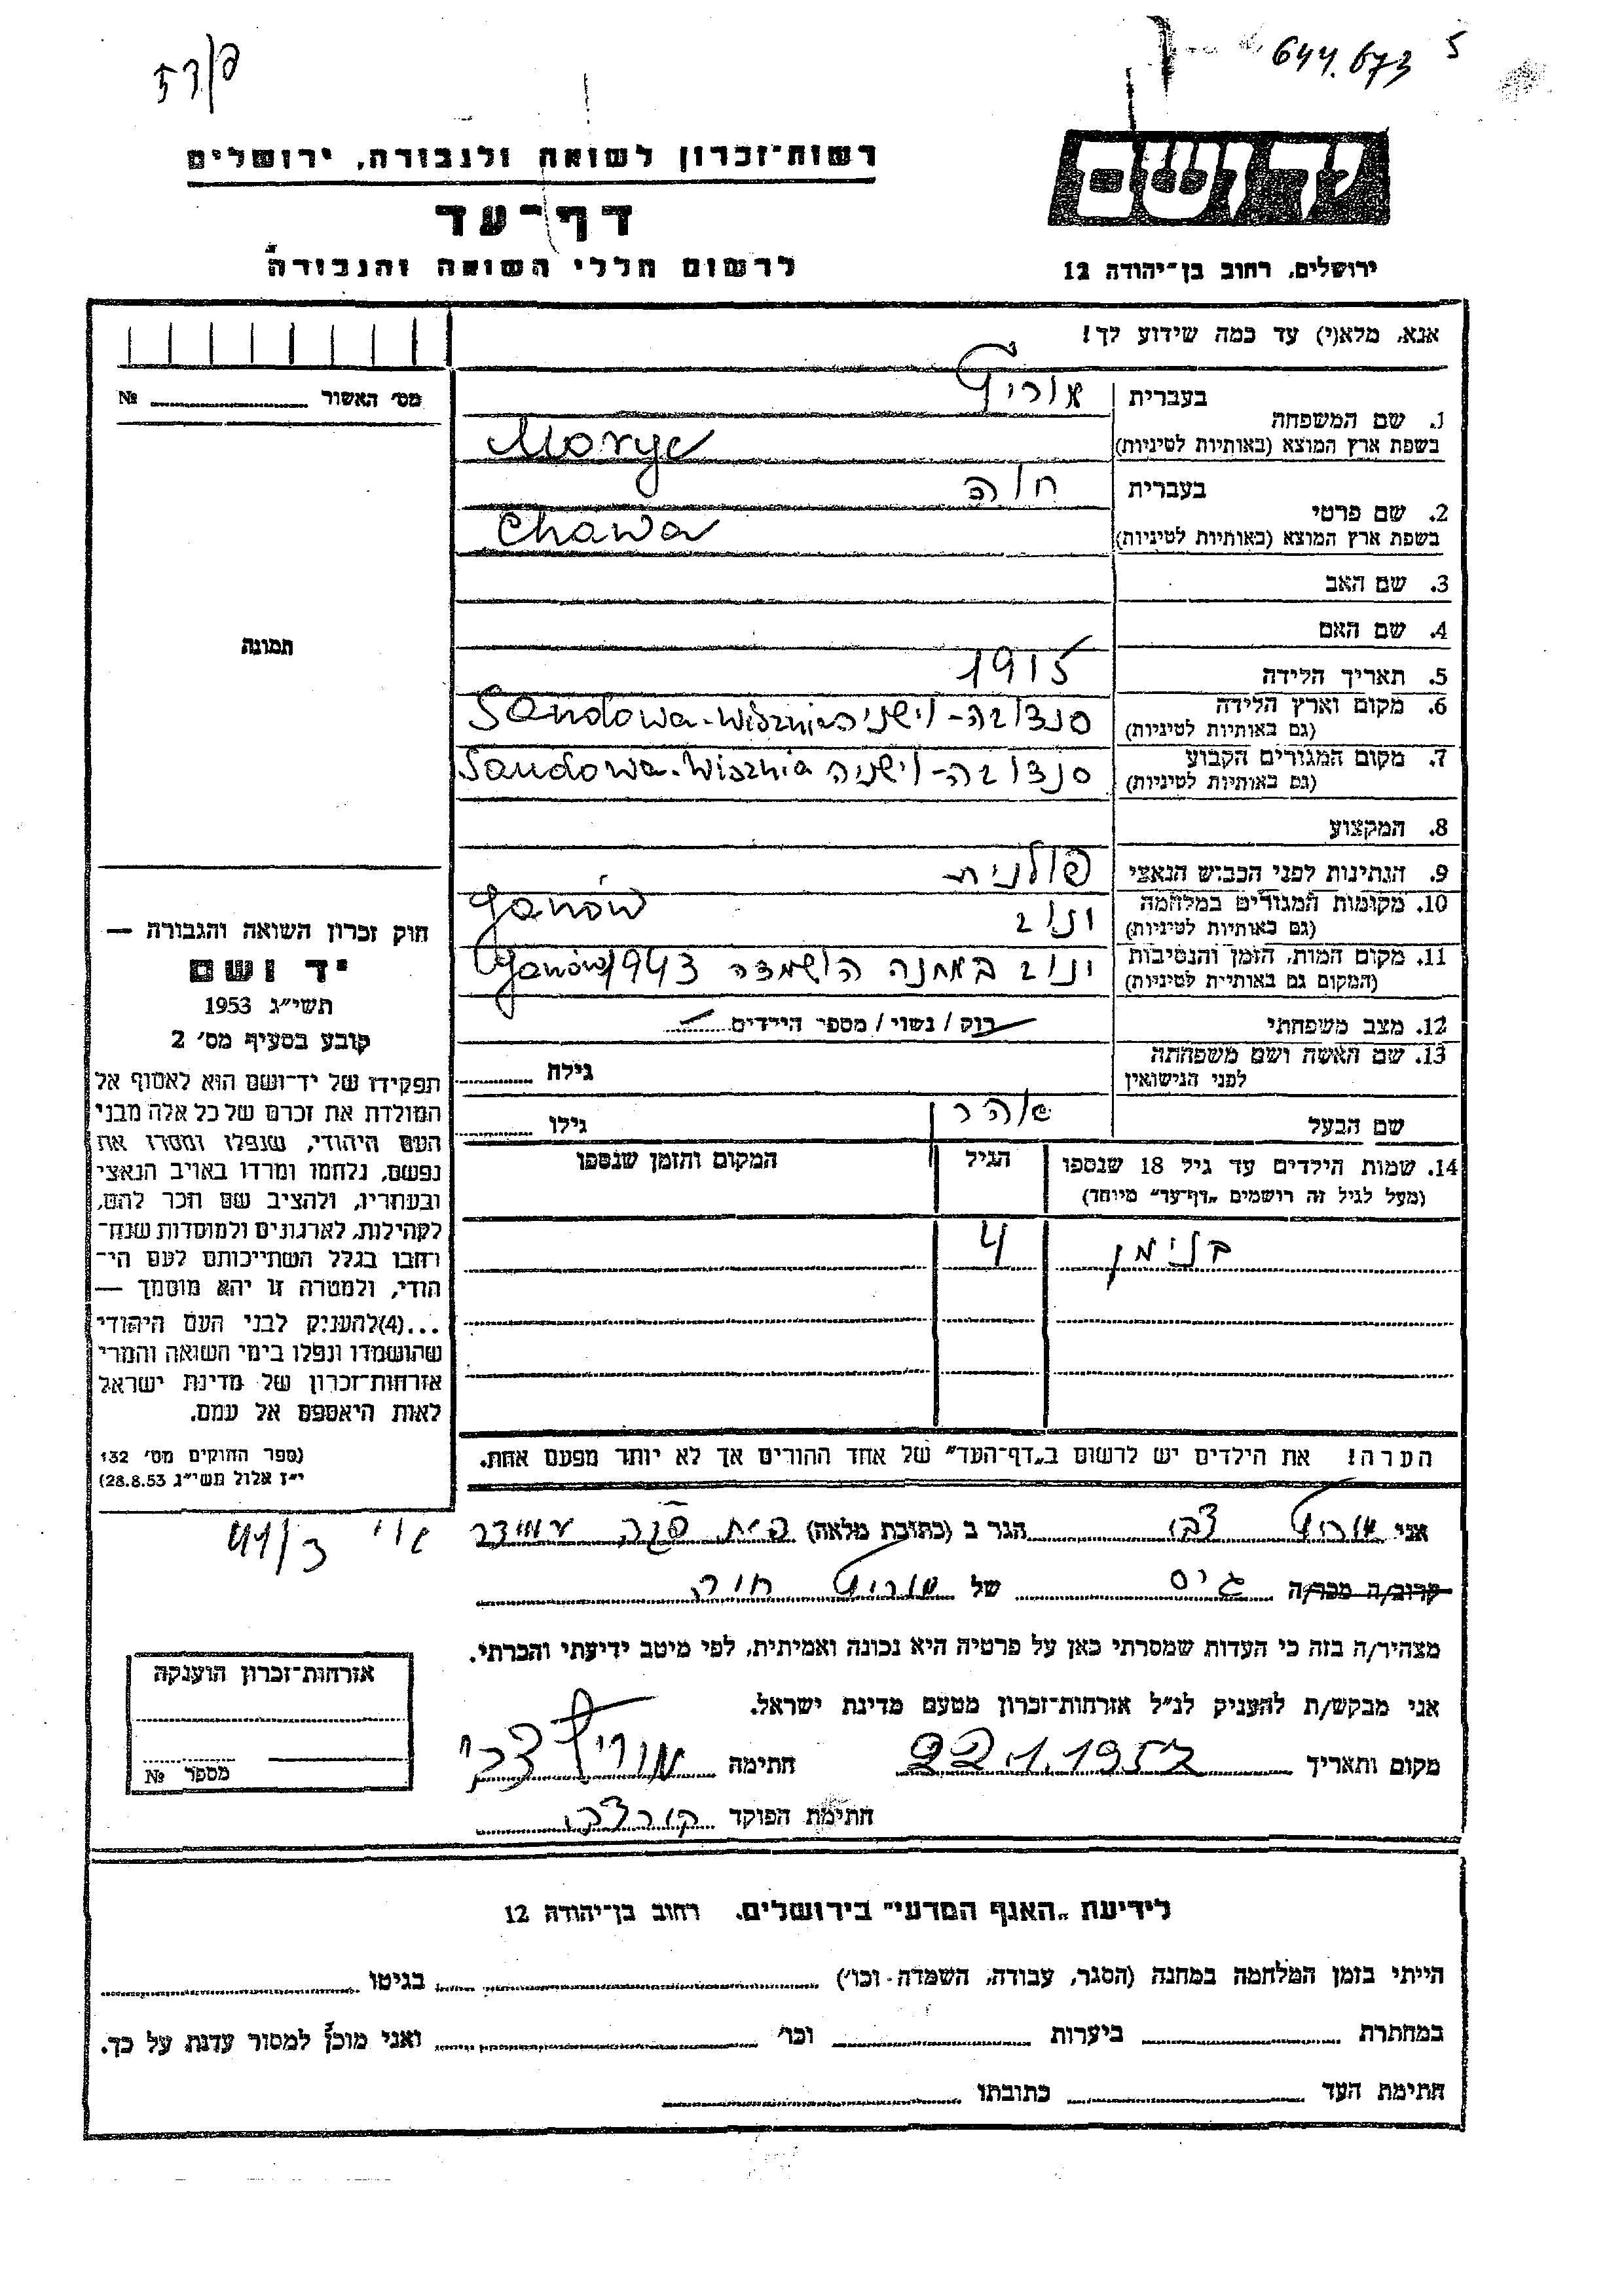 644.673 5
רשות־זכרון לשואה ולגבורה, ירושלים
דף־עד
לרשום חללי השואה והגבורה
יד ושם
ירושלים, רחוב בן־יהודה 12
אנא, מלא(י) עד כמה שידוע לך!
מס׳ האשור № 
1. שם המשפחה
בעברית
בשפת ארץ המוצא (באותיות לטיניות) Morye
2. שם פרטי
בעברית חוה
בשפת ארץ המוצא (באותיות לטיניות) Chawa
3. שם האב
4. שם האם
5. תאריך הלידה 1915
6. מקום וארץ הלידה
(גם באותיות לטיניות) סנדובה-וישניה Sandowa-Wisznia
7. מקום המגורים הקבוע
(גם באותיות לטיניות) סנדובה-וישניה Sandowa-Wisznia
8. המקצוע
9. הנתינות לפני הכבוש הנאצי פולנית
10. מקומות המגורים במלחמה
(גם באותיות לטיניות) ינוב Janów
11. מקום המות, הזמן והנסיבות
(המקום גם באותיות לטיניות) ינוב במחנה השמדה 1943 Janów
12. מצב משפחתי רוק / נשוי / מספר הילדים
13. שם האשה ושם משפחתה
לפני הנישואין גילה
שם הבעל אהרן גילו
14. שמות הילדים עד גיל 18 שנספו
(מעל לגיל זה רושמים „דף־עד״ מיוחד)
הגיל
המקום והזמן שנספו
בנימין 4
הערה! את הילדים יש לרשום ב„דף־העד״ של אחד ההורים אך לא יותר מפעם אחת.
תמונה
חוק זכרון השואה והגבורה —
יד ושם
תשי״ג 1953
קובע בסעיף מס׳ 2
תפקידו של יד־ושם הוא לאסוף אל
המולדת את זכרם של כל אלה מבני
העם היהודי, שנפלו ומסרו את
נפשם, נלחמו ומרדו באויב הנאצי
ובעוזריו, ולהציב שם וזכר להם,
לקהילות, לארגונים ולמוסדות שנח־
רבו בגלל השתייכותם לעם הי־
הודי, ולמטרה זו יהא מוסמך —
...(4)להעניק לבני העם היהודי
שהושמדו ונפלו בימי השואה והמרי
אזרחות־זכרון של מדינת ישראל
לאות היאספם אל עמם.
(ספר החוקים מס׳ 132
י״ז אלול תשי״ג 28.8.53)
אני צבי הגר ב (כתובת מלאה)
קרוב/ה מכר/ה גיס של חוה
מצהיר/ה בזה כי העדות שמסרתי כאן על פרטיה היא נכונה ואמיתית, לפי מיטב ידיעתי והכרתי.
אני מבקש/ת להעניק לנ״ל אזרחות־זכרון מטעם מדינת ישראל.
מקום ותאריך 22.1.1957 חתימה צבי
חתימת הפוקד
אזרחות־זכרון הוענקה
מספר №
לידיעת „האגף המדעי״ בירושלים, רחוב בן־יהודה 12
הייתי בזמן המלחמה במחנה (הסגר, עבודה, השמדה וכו׳) בגיטו
במחתרת ביערות וכו׳ ואני מוכן למסור עדות על כך.
חתימת העד כתובתו